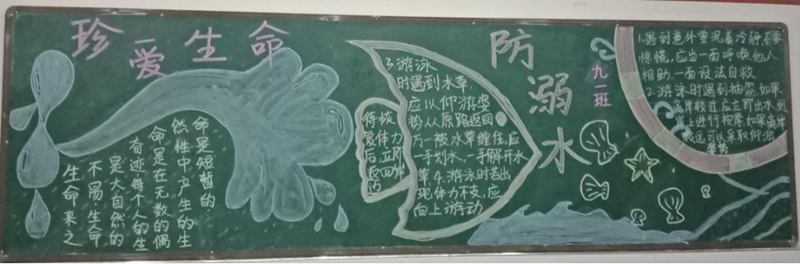 珍爱生命
防溺水
九一班
生命来之
不易生命
是大自然的
奇迹每个人的生
命是在无数的偶
然性中产生的生
命是短暂的
3.游泳
时遇到水草,
应以仰游姿
势从原路返回
万一被水草缠住,应
一手划水,一手解开水
草4.游泳时若出
现体力不支,应
向上游动
待恢
复体力
后立即
返回岸
1.遇到意外要沉着冷静,不要
惊慌,应当一面呼唤他人
相助,一面设法自救
2.游泳时遇到抽筋,如果
离岸较近应立即出水到
岸上进行按摩,如果离岸
较远可以采取仰游
姿势